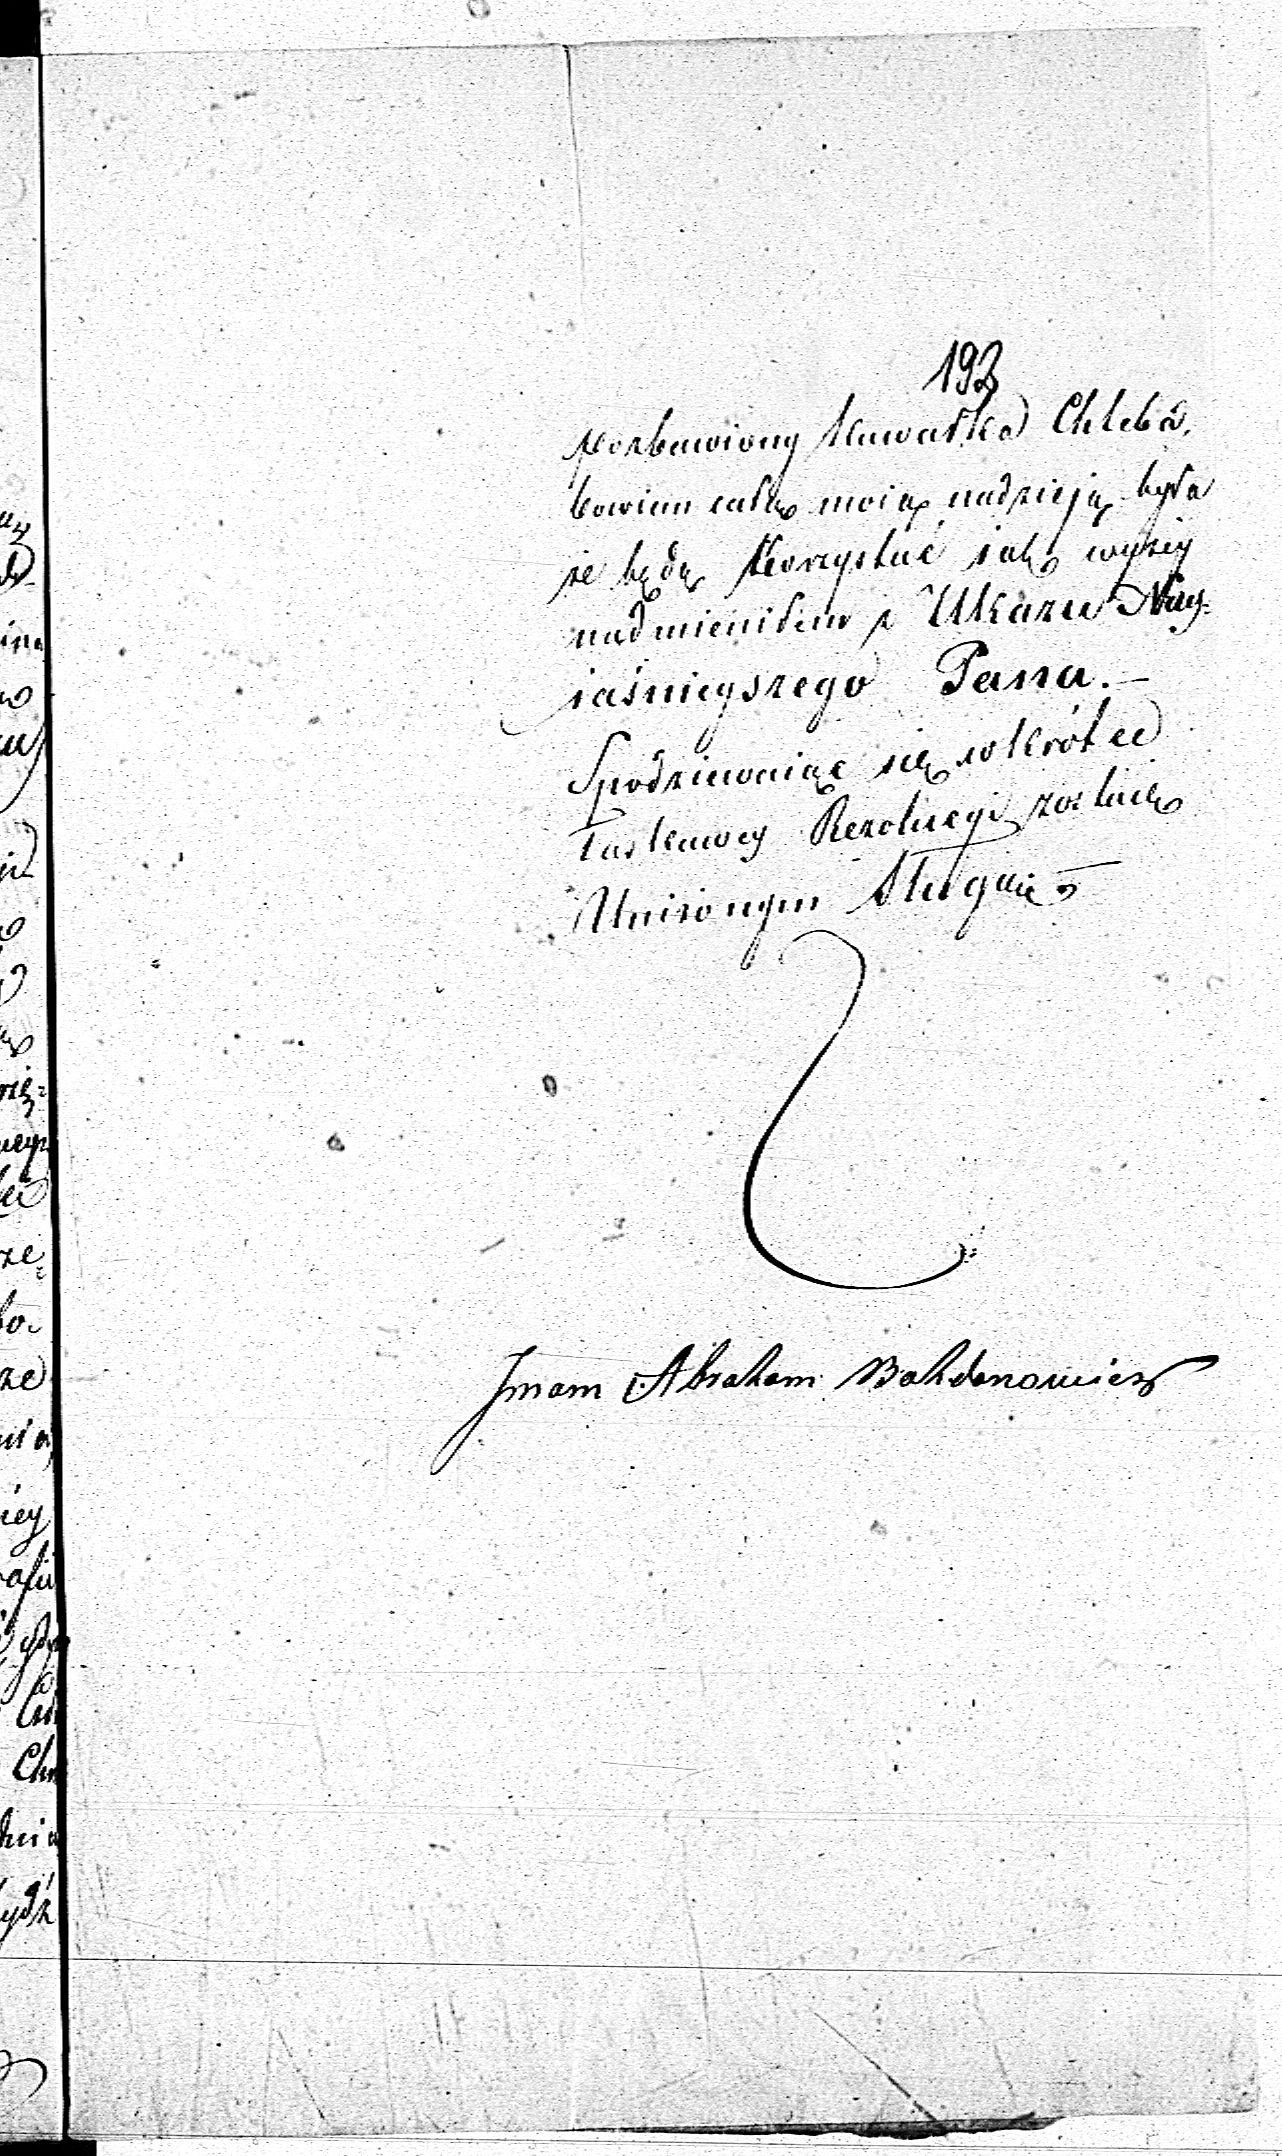 193
pozbawiony kawałka Chleba,
bowiem całą moią nadzieją była
że będę korzystać jak wyżey
nadmieniłem z Ukazu Nay=
iaśnieyszego Pana.—
Spodziewaiąc się wkrótce
Łaskawey Rezolucyi zostaię
Uniżonym Sługą
Imam Abraham Bohdanowicz